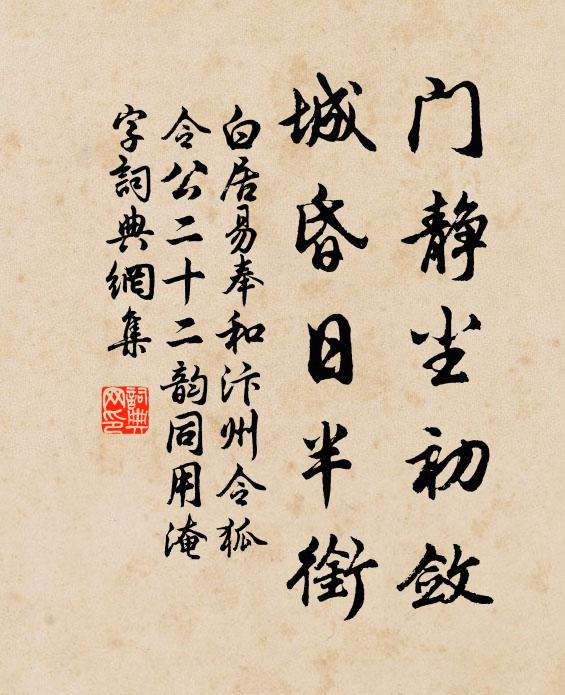 门静尘初敛
城昏日半銜
白居易奉和汴州令狐
令公二十二韵同用淹
字詞典網集
詞典网印